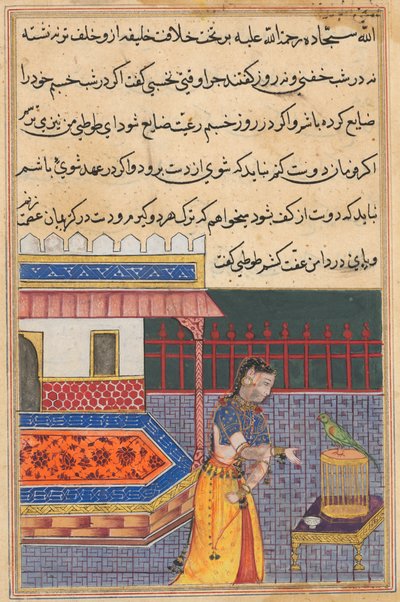 الله سجاده رحمة الله علیه بر تخت خلافت خلیفه از و خلف تو نه نشسته
نه در شب خفتی و نه روز گفتند چرا وقتی نخسپی گفت اکر در شب خسپم خود را
ضایع کرده باشم و اکر در روز خسپم رعیت ضایع شود ای طوطی من نیز می ترسم
اکر ومان دوست کنم نباید که شوی از دست برود و اکر در عهد شوی باشم
نباید که دوست از کف شود میخواهم که ترک هر دو کیرم و دست در کریبان عفت زنم
و پای در دامن عفت کشم طوطی کفت